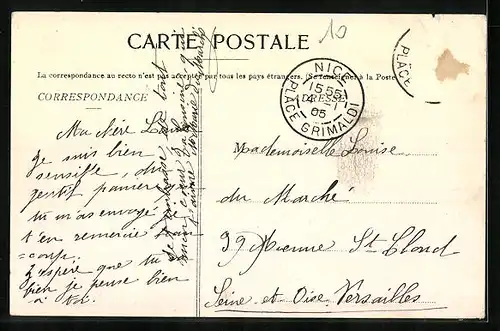 10
CARTE POSTALE
La correspondance au recto n'est pas acceptée par tous les pays étrangers. (Se renseigner à la Poste)
CORRESPONDANCE
ADRESSE
NICE
15 55
4 - 1
05
PLACE GRIMALDI
PLACE
Ma chère Louise
Je suis bien
sensible, du
gentil panier
tu m'as envoyé
t'en remercie
= coup.
J'espère que tu
bien je pense bien
à toi.
Mademoiselle Louise
du Marché
39 Avenue St Cloud
Seine et Oise Versailles